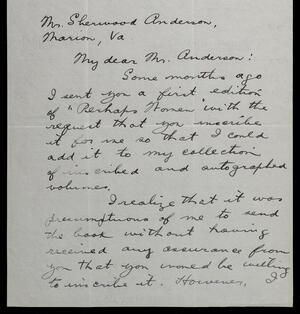 Mr. Sherwood Anderson,
Marion, Va
My dear Mr. Anderson:
Some months ago
I sent you a first edition
of "Perhaps Women" with the
request that you inscribe
it for me so that I could
add it to my collection
of inscribed and autographed
volumes.
I realize that it was
presumptuous of me to send
the book without having
received any assurance from
you that you would be willing
to inscribe it. However, I